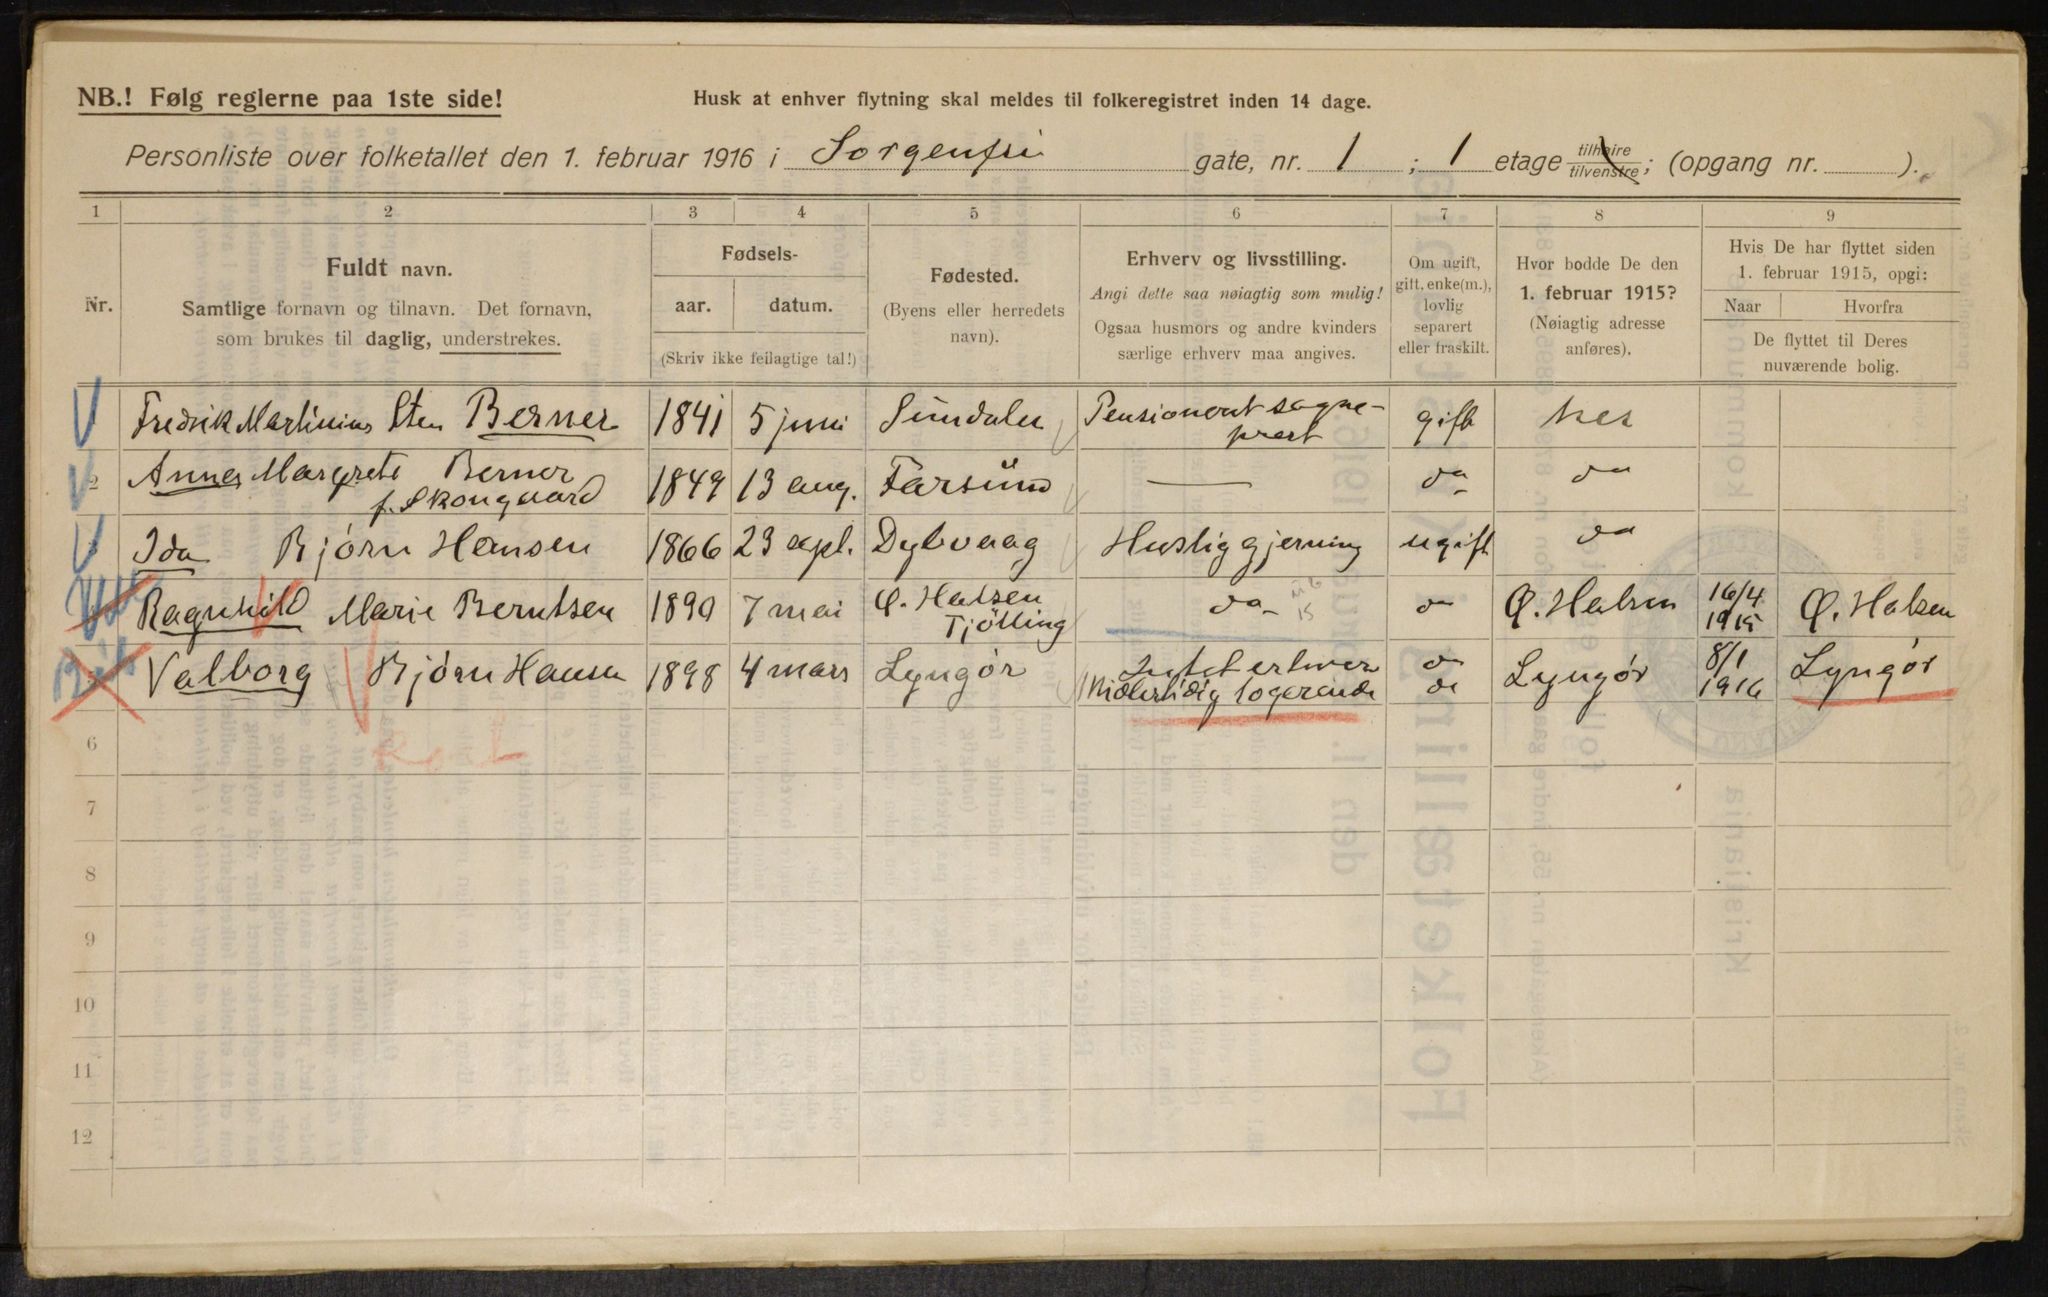 NB.! Følg reglerne paa 1ste side!
Husk at enhver flytning skal meldes til folkeregistret inden 14 dage.
Personliste over folketallet den 1. februar 1916 i Sorgenfri gate, nr. 1 ; 1 etage tilhøire tilvenstre; (opgang nr. ).
1 2 3 4 5 6 7 8 9
Nr.
Fuldt navn.
Samtlige fornavn og tilnavn. Det fornavn,
som brukes til daglig, understrekes.
Fødsels-
aar. datum.
(Skriv ikke feilagtige tal!)
Fødested.
(Byens eller herredets
navn).
Erhverv og livsstilling.
Angi dette saa nøiagtig som mulig!
Ogsaa husmors og andre kvinders
særlige erhverv maa angives.
Om ugift,
gift, enke(m.),
lovlig
separert
eller fraskilt.
Hvor bodde De den
1. februar 1915?
(Nøiagtig adresse
anføres).
Hvis De har flyttet siden
1. februar 1915, opgi:
Naar Hvorfra
De flyttet til Deres
nuværende bolig.
Fredrik Martinius Sten Berner 1841 5 juni Sundalen Pensionert sogne- gift her
prest
2 Anna Margrete Berner 1849 13 aug. Farsund — da da
f. Skougaard
Ida Bjørn Hansen 1866 23 sept. Dybvaag Huslig gjerning ugift da
Ragnhild Marie Berntsen 1890 7 mai Ø. Halsen do do Ø. Halsen 16/4 Ø. Halsen
Tjölling 1915
Valborg Bjørn Hansen 1898 4 mars Lyngør Intet erhverv do Lyngør 8/1 Lyngør
Midlertidig logerende do 1916
6
7
8
9
10
11
12